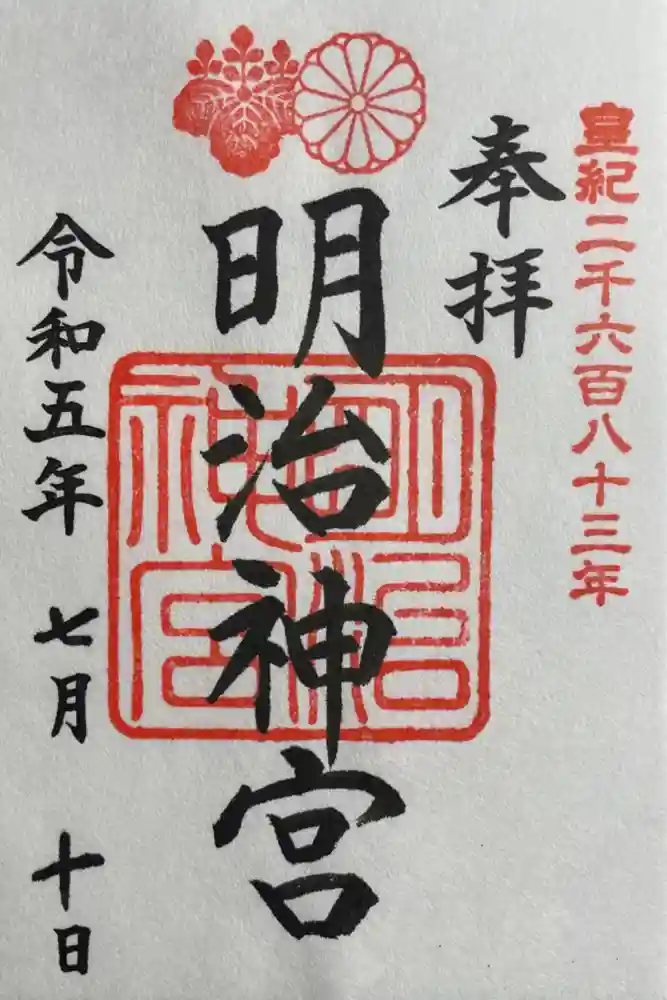 皇紀二千六百八十三年
奉拝
明治神宮
明治神宮
令和五年 七月 十日